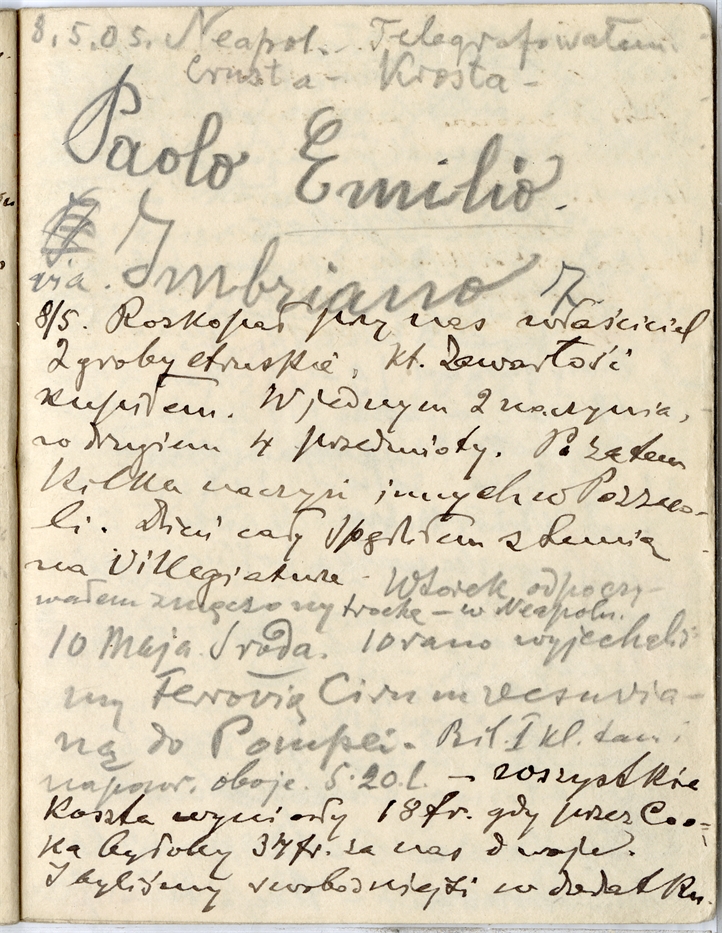 8.5.05. Neapol. - Telegrafowałem
Ernsta - Krosta -
Paolo Emilio.
via. Imbriano 7
8/5. Rozkopał przy nas właściciel
2 groby etruskie, kt. zawartość
kupiłem. W jednym 2 naczynia,
w drugiem 4 przedmioty. Po zatem
kilka naczyń innych w Pozzuo-
li. Dzień cały spędziłem z Lunią
na Villegiature - Wtorek odpoczy-
wałem zmęczony trochę - w Neapolu.
10 Maja Środa. 10 rano wyjechaliś
my Ferrovią Circumvesuvia-
ną do Pompei. Bil. I kl. tam i
napowr. oboje. 5.20.l. - wszystkie
koszta wyniosły 18 fr. gdy przez Coo-
ka byłoby 37 fr. za nas dwoje.
I byliśmy swobodniejsi w dodatku.